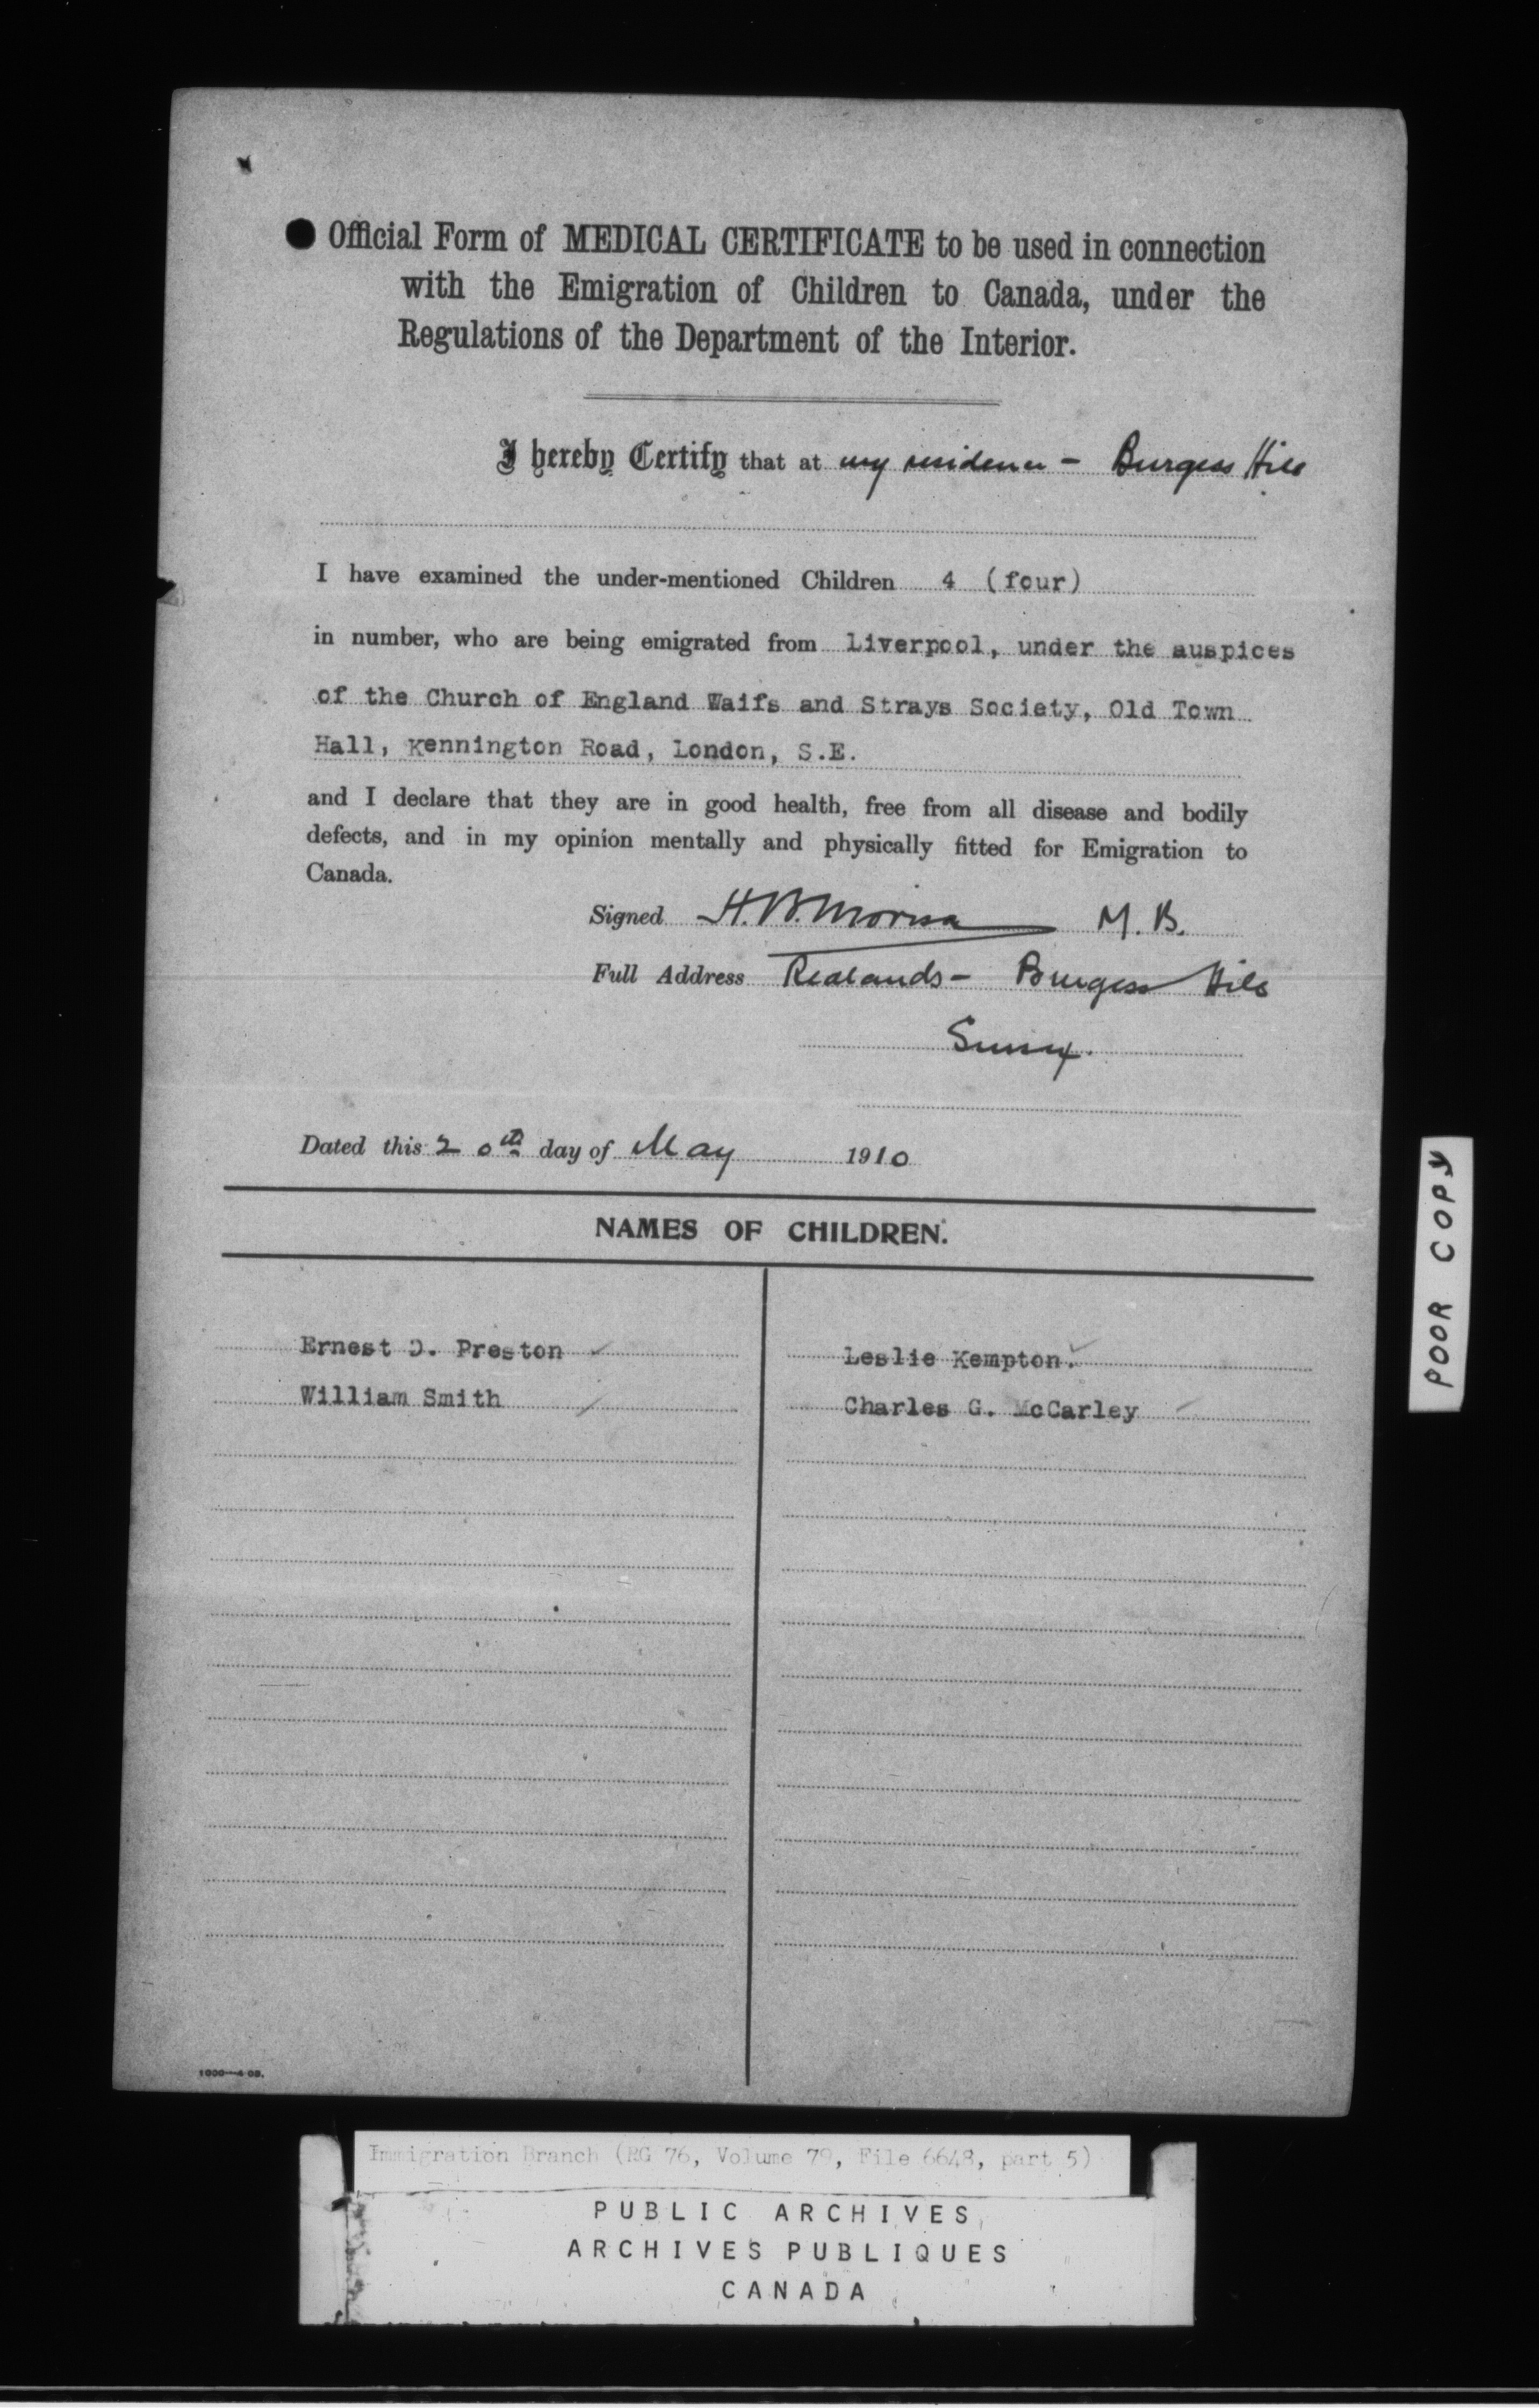 Official Form of MEDICAL CERTIFICATE to be used in connection
with the Emigration of Children to Canada, under the
Regulations of the Department of the Interior.
I hereby Certify that at my residence - Burgess Hill
I have examined the under-mentioned Children 4 (four)
in number, who are being emigrated from Liverpool, under the auspices
of the Church of England Waifs and Strays Society, Old Town
Hall, Kennington Road, London, S.E.
and I declare that they are in good health, free from all disease and bodily
defects, and in my opinion mentally and physically fitted for Emigration to
Canada.
Signed H.B. M.B.
Full Address Burgess Hill
Sussex.
Dated this 20th day of May 1910
NAMES OF CHILDREN.
Ernest D. Preston
Leslie Kempton.
William Smith
Charles G. McCarley
POOR COPY
Immigration Branch (RG 76, Volume 79, File 6648, part 5)
PUBLIC ARCHIVES
ARCHIVES PUBLIQUES
CANADA